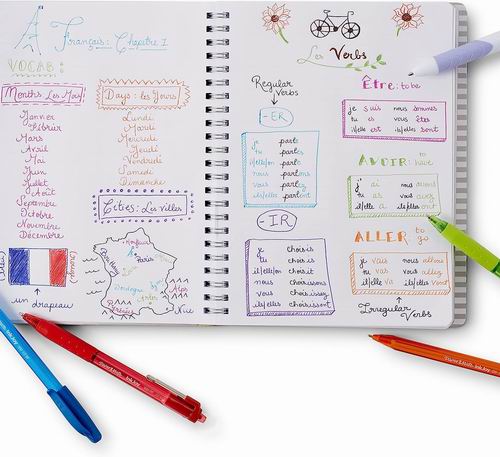 Français: Chapitre 1
VOCAB:
Months Les Mois
Janvier
Février
Mars
Avril
Mai
Juin
Juillet
Août
Septembre
Octobre
Novembre
Décembre
Days: les Jours
Lundi
Mardi
Mercredi
Jeudi
Vendredi
Samedi
Dimanche
Cities: Les villes
Paris
Nice
un drapeau
Les Verbs
Regular
Verbs
-ER
je parle
tu parles
il/elle/on parle
nous parlons
vous parlez
ils/elles parlent
-IR
je choisis
tu choisis
il/elle/on choisit
nous choisissons
vous choisissez
ils/elles choisissent
Être: to be
je suis nous sommes
tu es vous êtes
il/elle est ils/elles sont
AVOIR: to have
j' ai nous avons
tu as vous avez
il/elle a ils/elles ont
ALLER: to go
je vais nous allons
tu vas vous allez
il/elle va ils/elles vont
Irregular
Verbs